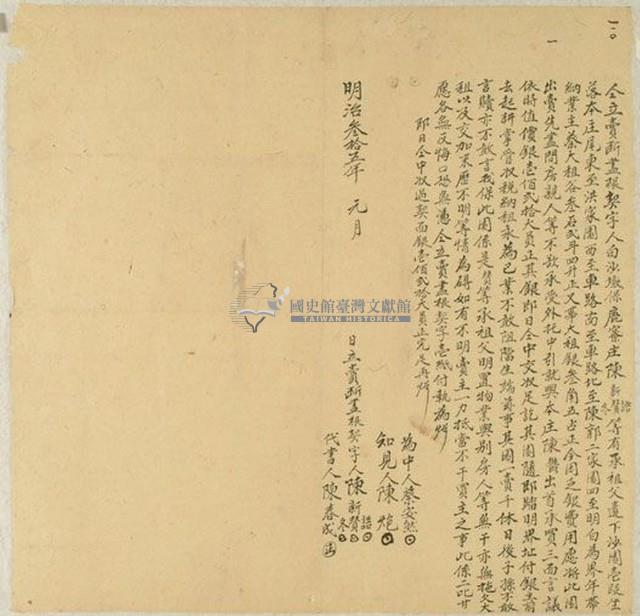 一二〇
一
仝立賣斷盡根契字人白沙墩保鹿寮庄陳新賛等有承祖父遺下沙園壱段坐
落本庄尾東至洪家園西至車路南至車路北至陳郭二家園四至明白為界年帶
納業主蔡大租谷叁石弍斗四升正又帶大租銀叁角五占正今因乏銀費用愿將此園
出賣先盡問房親人等不欲承受外托中引就與本庄陳出首承買三面言議
依時值價銀壱佰弍拾大員正其銀即日仝中交收足訖其園隨即踏明界址付銀主前
去起耕掌管收税納租永為己業不敢阻擋生端滋事其園一賣千休日後子孫不敢
言贖亦不敢言找保此園係是賛等承祖父明置物業與別房人等無干亦無拖欠大
租以及交加來歷不明等情為碍如有不明賣主一力抵當不干買主之事此係二比甘
愿各無反悔口恐無憑仝立賣盡根契字壱紙付執為炤
即日仝中收過契面銀壱佰弍拾大員正完足再炤
為中人蔡安然
知見人陳
明治叁拾五年 元月 日立賣斷盡根契字人陳新賛
代書人陳春成
國史館臺灣文獻館
TAIWAN HISTORICA